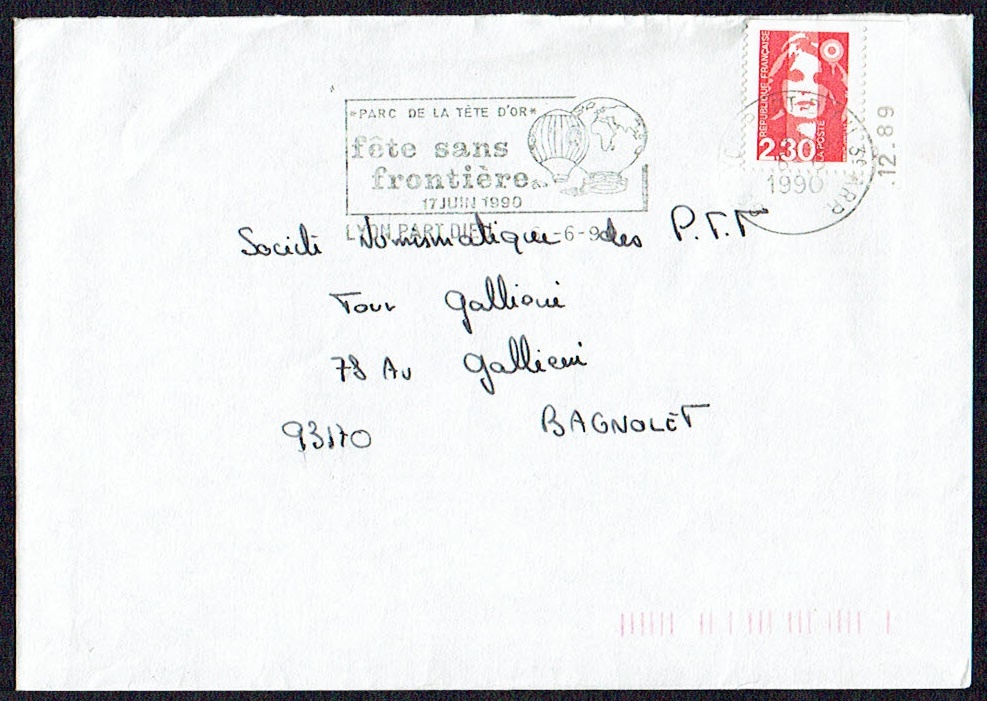 *PARC DE LA TÊTE D'OR*
fête sans
frontière
17 JUIN 1990
LYON PART DIEU -6-90
RÉPUBLIQUE FRANÇAISE
2.30
LA POSTE
1990
.12.89
Société Numismatique des P.T.T
Tour Gallieni
78 Av Gallieni
93170 BAGNOLET